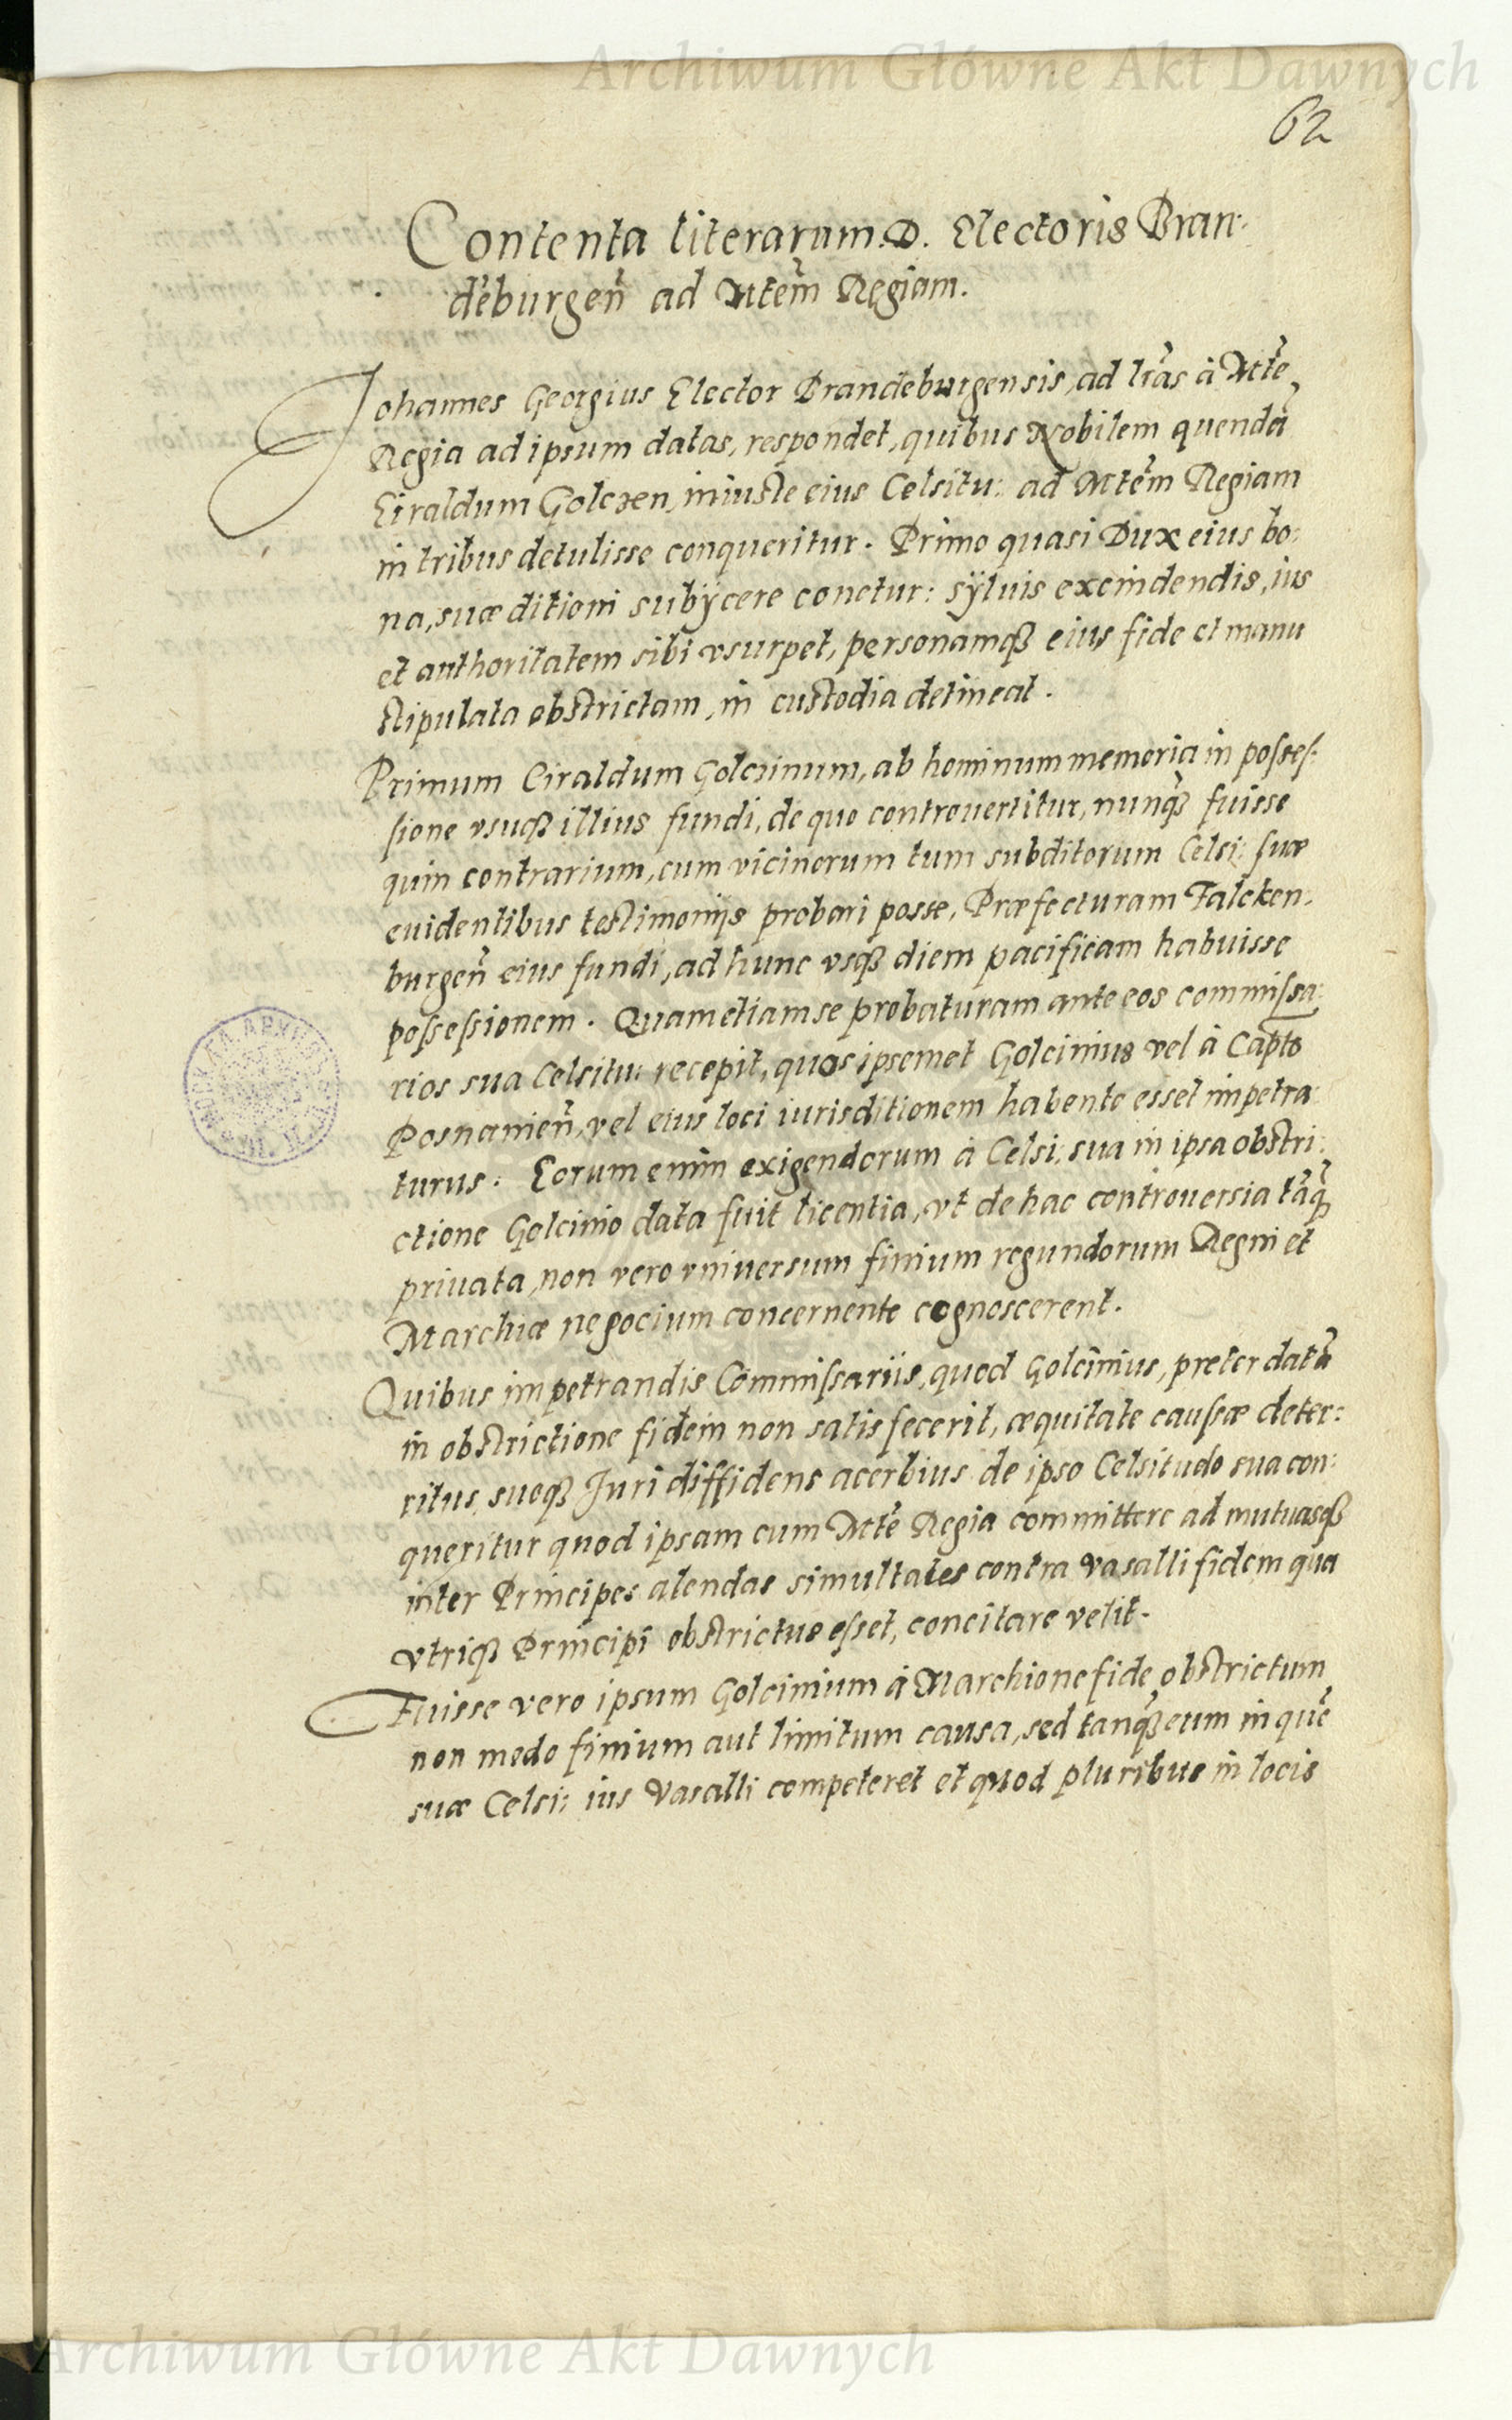 Archiwum Główne Akt Dawnych
62
Contenta literarum D. Electoris Bran:
deburgeñ ad Mtem̃ Regiam.
Johannes Georgius Elector Brandeburgensis, ad lr̃as à Mte᷉
Regia ad ipsum datas, respondet, quibus Nobilem quendã
Ciraldum Golczen, iniuste eius Celsitu: ad Mtem̃ Regiam
in tribus detulisse conqueritur. Primo quasi Dux eius bo:
na, suæ ditioni subÿcere conetur: sÿluis excindendis, ius
et authoritatem sibi vsurpet, personamqꝫ eius fide et manu
stipulata obstrictam, in custodia detineat.
Primum Ciraldum Golczinum, ab hominum memoria in posses:
sione vsuqꝫ illius fundi, de quo controuertitur, nunqꝫ̃ fuisse
quin contrarium, cum vicinorum tum subditorum Celsi: suæ
euidentibus testimonijs probari posse, Præfecturam Falcken:
burgeñ eius fundi, ad hunc vsqꝫ diem pacificam habuisse
possessionem. Quam etiam se probaturam ante eos commissa:
rios sua Celsitu: recepit, quos ipsemet Golcinius vel à Capto
Posnanieñ, vel eius loci iurisditionem habente esset impetra:
turus: Eorum enim exigendorum à Celsi: sua in ipsa obstri:
ctione Golcinio data fuit licentia, vt de hac controuersia tãqꝫ̃
priuata, non vero vniuersum finium regundorum Regni et
Marchiæ negocium concernente cognoscerent.
Quibus impetrandis Commissariis, quod Golcinius, preter datã
in obstrictione fidem non satis fecerit, æquitate caussæ deter:
ritus, suoqꝫ Juri diffidens acerbius de ipso Celsitudo sua con:
queritur quod ipsam cum Mte᷉ Regia committere ad mutuasqꝫ
inter Principes alendas simultates contra vasalli fidem qua
vtriqꝫ Principi obstrictus esset, concitare velit.
Fuisse vero ipsum Golcinium à Marchione fide obstrictum
non modo finium aut limitum causa, sed tanqꝫ̃ eum in quẽ
suæ Celsi: ius vasalli competeret et quod pluribus in locis
Archiwum Główne Akt Dawnych